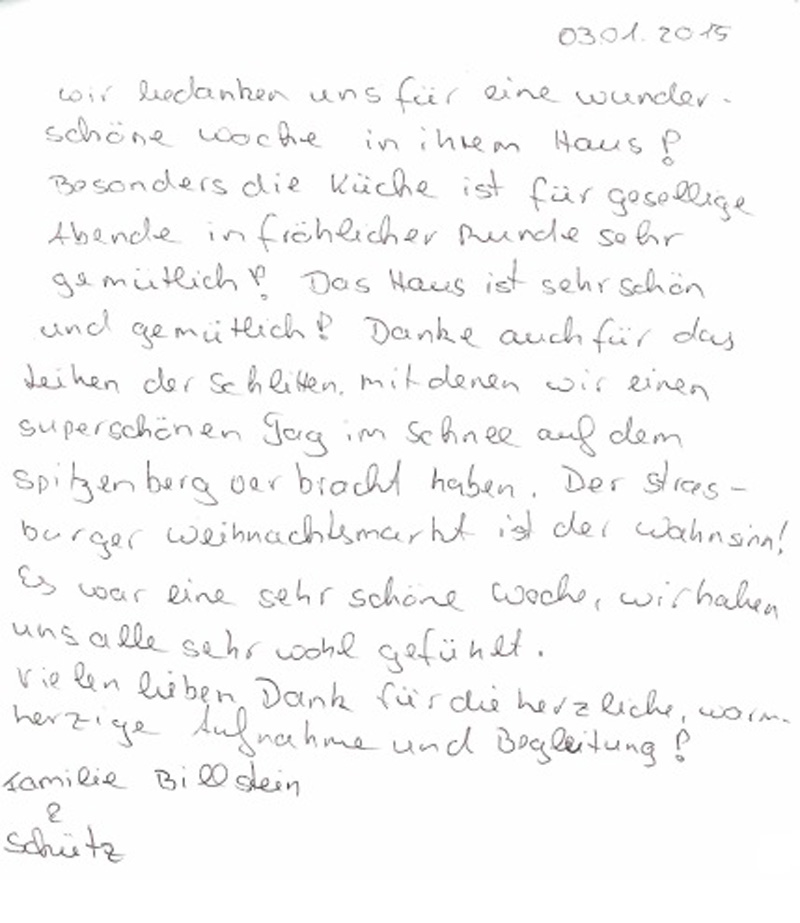 03.01.2015
wir bedanken uns für eine wunder-
schöne woche in ihrem Haus!
Besonders die Küche ist für gesellige
Abende in fröhlicher Runde sehr
gemütlich! Das Haus ist sehr schön
und gemütlich! Danke auch für das
Leihen der Schlitten, mit denen wir einen
superschönen Tag im Schnee auf dem
Spitzenberg verbracht haben. Der stras-
burger Weihnachtsmarkt ist der Wahnsinn!
Es war eine sehr schöne Woche, wir haben
uns alle sehr wohl gefühlt.
Vielen lieben Dank für die herzliche, warm-
herzige Aufnahme und Begleitung!
Familie Billstein
&
Schütz